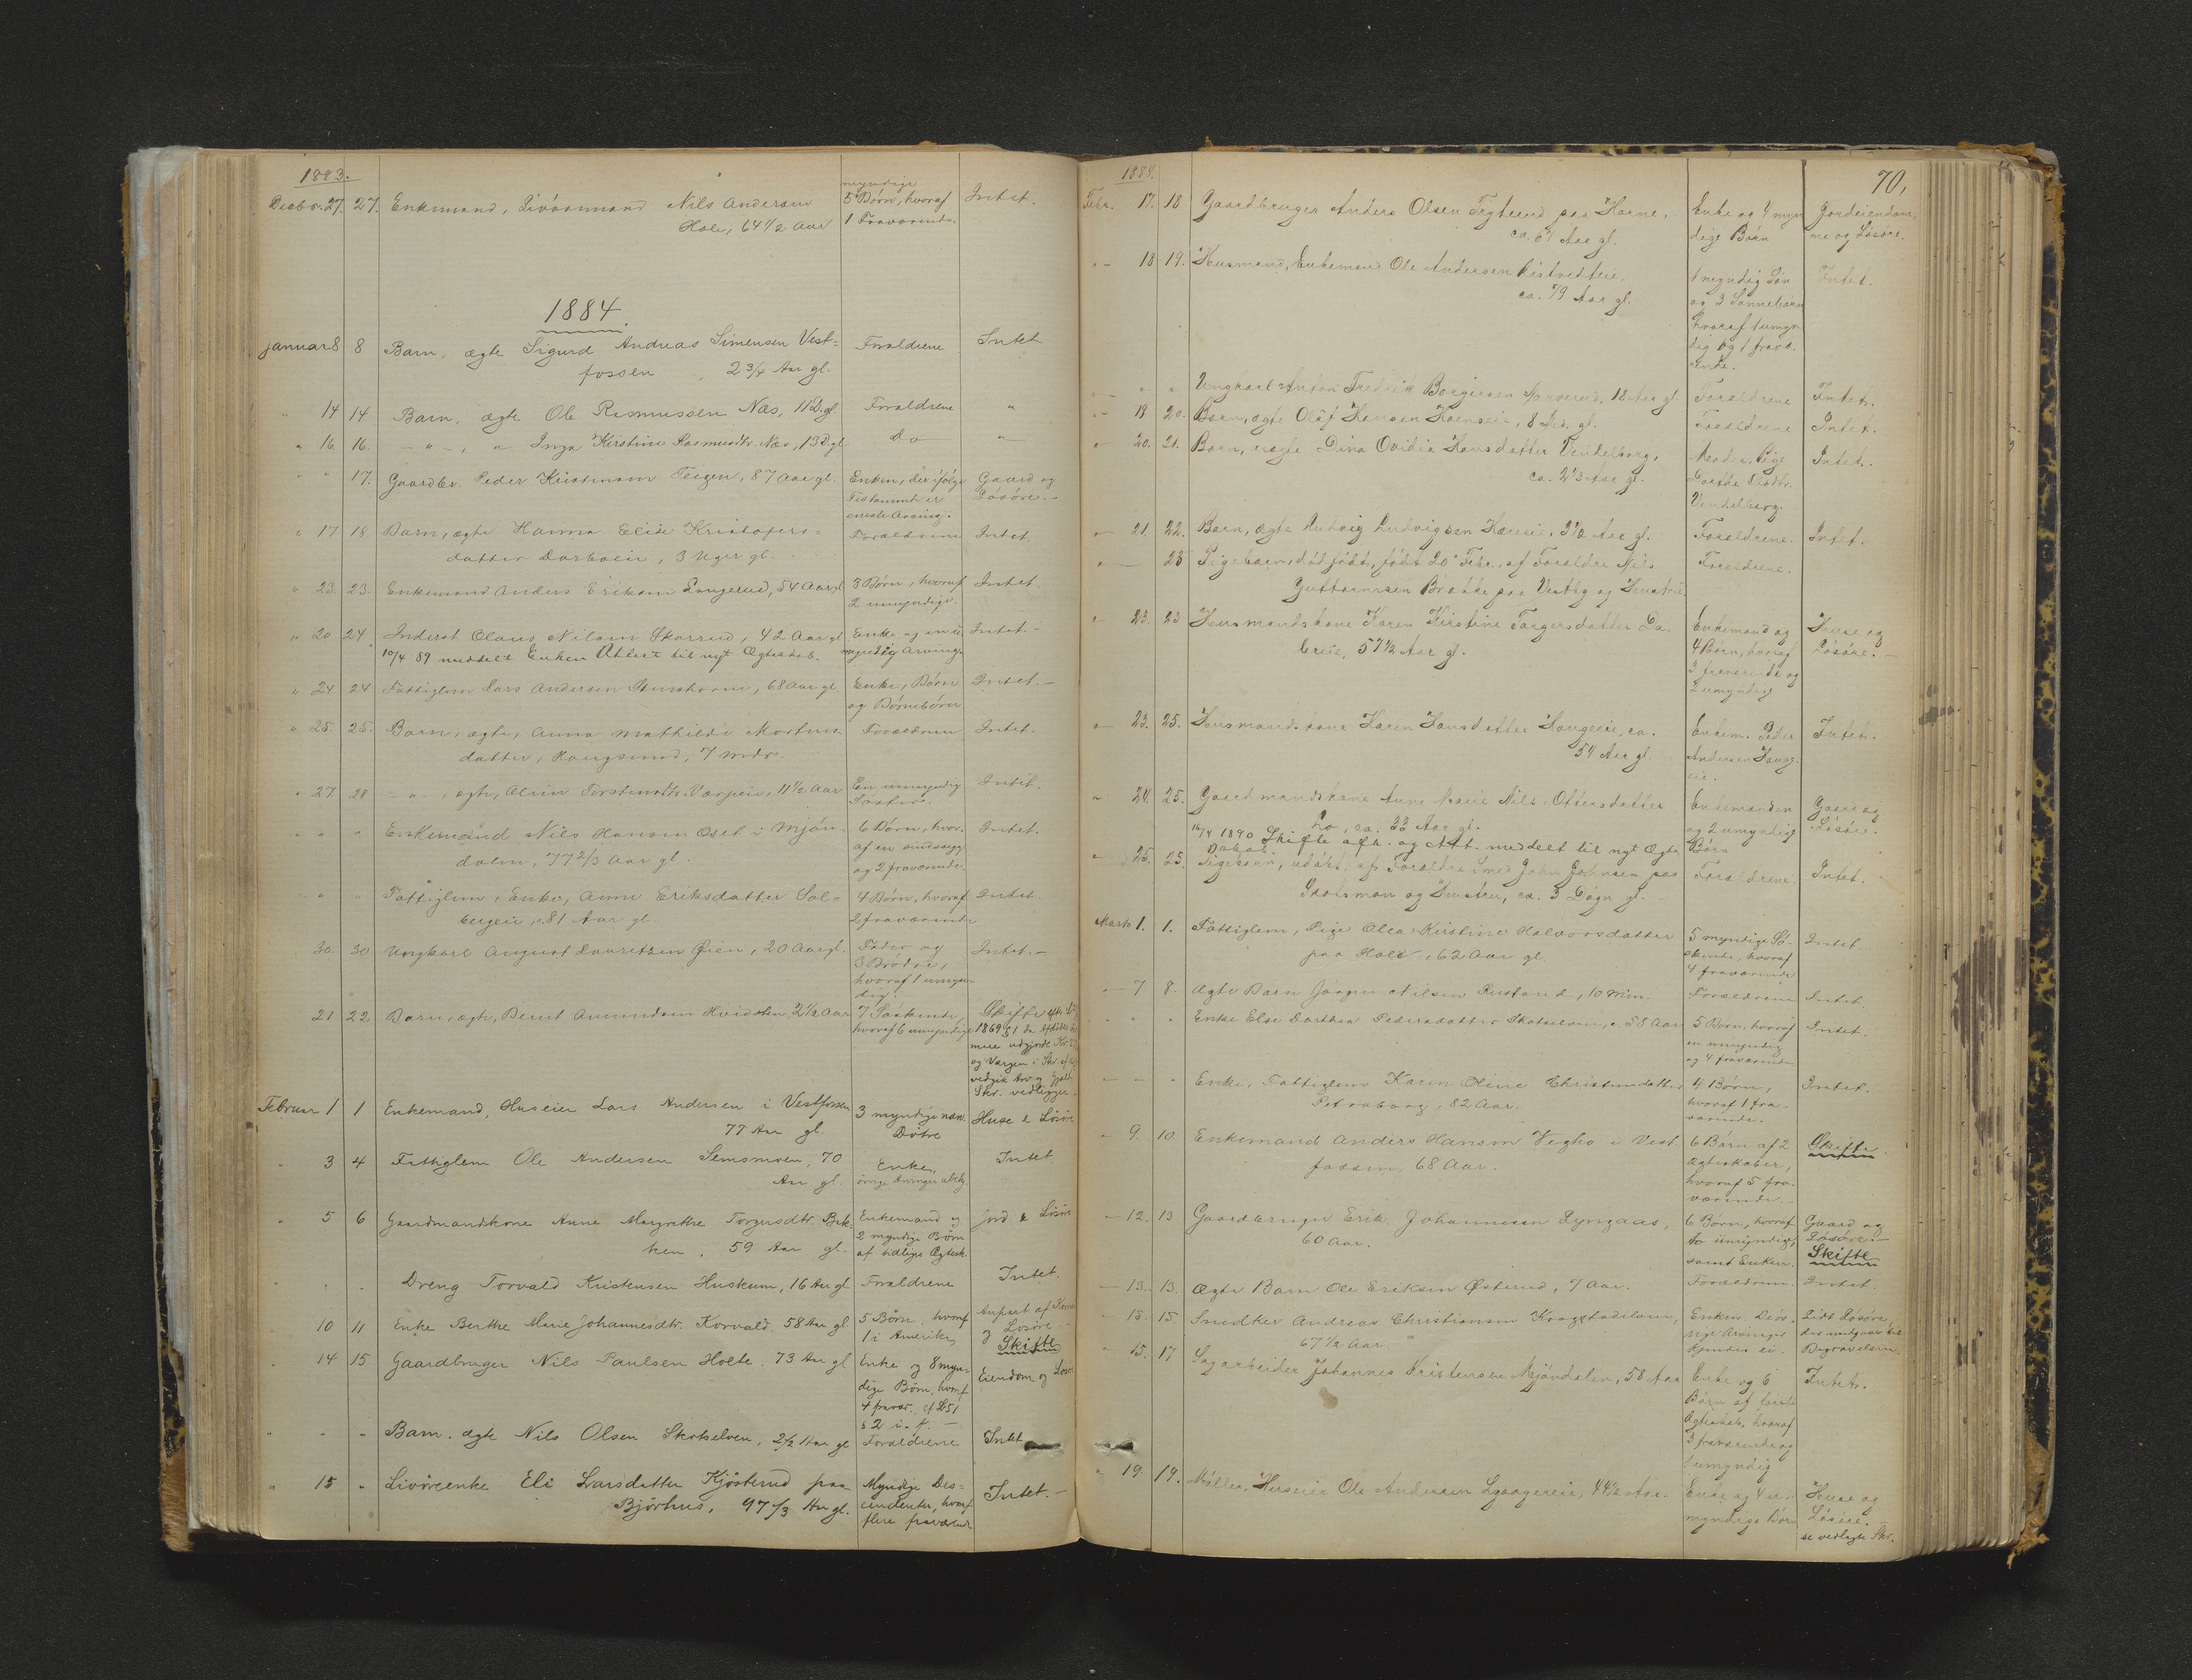 1883.
Decbr. 27. 27. Enkemand, Livöremand Nils Andersen
Hole, 64 1/2 Aar
myndige
5 Börn, hvoraf
1 Fraværende.
Intet.
1884
Januar 8 8 Barn, ægte Sigurd Andreas Simensen Vest=
fossen, 2 3/4 Aar gl.
Forældrene
Intet
" 14 14 Barn, ægte Ole Rasmussen Næs, 11 D. gl.
Forældrene
"
" 16 16. - " - , " Inga Kirstine Rasmusdtr. Næs, 13 D. gl
do
"
" " 17. Gaardbr. Peder Kristensen Teigen, 87 Aar gl.
Enken, der ifölge
Testament er
eneste Arving.
Gaard og
Lösöre.-
" 17 18. Barn, ægte Hanna Elise Kristofers=
datter , 3 Uger gl.
Forældrene
Intet.
" 23. 23. Enkemand Anders Eriksen Langerud, 54 Aar gl
3 Börn, hvoraf
2 umyndige.
Intet.
" 20 24. Inderst Olaus Nilsen Skarrud, 42 Aar gl
10/4 89 meddelt Enken Attest til nyt Ægteskab.
Enke og en u-
myndig Arving.
Intet.-
" 24 24 Fattiglem Lars Andersen , 68 Aar gl
Enke, Börn
og Börnebörn
Intet.-
" 25. 25. Barn, ægte, Anna Mathilde Mortens
datter, Hougsund, 7 mdr.
Forældrene
Intet.
" 27. 28 - " -, ægte, Torstensdtr. , 11 1/2 Aar
En umyndig
Söster.
Intet.
" " " Enkemand Nils Hansen Oset i Mjön-
dalen, 77 2/3 Aar gl.
6 Börn, hvor-
af en sindssyg
og 2 fraværende.
Intet.
" " Fattiglem, Enke, Anne Eriksdatter Sol=
bergeie, 81 Aar gl.
4 Börn, hvoraf
2 fraværende
Intet
30. 30 Ungkarl August Lauritsen Öien, 20 Aar gl.
Fader og
3 Brödre,
hvoraf 1 umyn-
dig.
Intet.-
21 22 Barn, ægte, Bernt Amundsen Hvidsten, 2 1/2 Aar
7 Söskende,
hvoraf 6 umyndige
Skifte efter
1869
udgjorde Kr.
og Værgen i Skr. af
vedgik Arv og Gjæld
Skr. vedlægger
Februar 1 1 Enkemand, Huseier Lars Andersen i Vestfossen
77 Aar gl.
3 myndige
Dötre
Huse & Lösöre
" 3 4 Fattiglem Ole Andersen Semsmoen, 70
Aar gl.
Enken,
övrige Arvinger ubekj.
Intet
" 5 6 Gaardmandskone Anne Margrethe Torgersdtr. Bek-
ken, 59 Aar gl.
Enkemand og
2 myndige Börn
af tidligere Ægtesk.
Jord & Lösöre
" " Dreng Torvald Kristensen Huskum, 16 Aar gl
Forældrene
Intet.
10 11 Enke Berthe Marie Johannesdtr. Korvald. 58 Aar gl
5 Börn, hvoraf
1 i Amerika
Anpart af
Lösöre -
Skifte
- 14 15 Gaardbruger Nils Paulsen Holte. 73 Aar gl
Enke og 8 myn-
dige Börn, hvoraf
4 fravær. cf
§ 2 i. f. -
Eiendom og Lösöre
- - - Barn. ægte Nils Olsen Skotselven, 2 1/2 Aar gl
Forældrene
Intet
" 15 " Livöreenke Eli Larsdatter Kjösterud paa
Bjørhus, 97 1/3 Aar gl.
Myndige Des=
cendenter, hvoraf
flere fraværende
Intet.-
1884.
70,
Febr. 17. 18 Gaardbruger Anders Olsen Tryterud paa Horne,
ca. 67 Aar gl.
Enke og 4 myn
dige Börn
Jordeiendom-
me og Lösöre.
" - 18 19. Husmand, Enkemand Ole Andersen
ca. 79 Aar gl.
1 myndig Sön
og 3 Sönnebörn
hvoraf 1 umyn
dig og 1 fravæ-
rende.
Intet.
" - " " Ungkarl Anton Fredrik Borgersen , 18 Aar gl
Forældrene
Intet.
" - 19 20. Barn, ægte Olaf Hansen , 8 Md. gl.
Forældrene
Intet.
" - 20. 21. Barn, uægte Dina Ovidia Hansdatter Vendelborg,
ca. 2 1/3 Aar gl.
Moder, Pige
Dorthe Olsdtr.
Vendelborg.
Intet.
" - 21. 22. Barn, ægte Ludvig Ludvigsen , 3 1/2 Aar gl.
Forældrene.
Intet.
" - 23 Pigebarn, dödfödt, födt 20' Febr., af Forældre Nils
Guttormsen Brække paa Vestby og Hustru
Forældrene.
" - 23. 23 Husmandskone Karen Kirstine Torgersdatter Da-
breie, 57 1/2 Aar gl.
Enkemand og
4 Börn, hvoraf
3 fraværende og
2 umyndig
Huse og
Lösöre.-
" - 23. 25. Husmandskone Karen Hansdatter Haugeeie, ca.
54 Aar gl.
Enkem. Peder
Andersen Haug-
eie.
Intet.
" - 24. 25. Gaardmandskone Anne Marie Nils Ottersdatter
Lo, ca. 33 Aar gl.
16/4 1890 Skifte afh. og Att. meddelt til nyt Ægte
skab
Enkemanden
og 2 umyndig
Börn
Gaard og
Lösöre.
" - 25. 25. Pigebarn, udöbt, af Forældre Smed John Johnsen paa
og Hustru, ca. 3 Dögn gl.
Forældrene.
Intet.
Marts 1. 1. Fattiglem, Pige Olea Kirstine Halvorsdatter
paa Hole, 62 Aar gl.
5 myndige Sö-
skende, hvoraf
4 fraværende
Intet.
" - 7 8. Ægte Barn Jörgen Nilsen Rustand, 10 Mdr.
Forældrene
Intet.
- " " Enke Else Dorthea Pedersdatter Skotselven, c. 58 Aar
5 Börn, hvoraf
en umyndig
og 4 fraværende
Intet.
- - " Enke, Fattiglem Karen Oline Christensdatter
Petersborg, 82 Aar.
4 Börn,
hvoraf 1 fra-
værende.
Intet.
- 9. 10 Enkemand Anders Hansen i Vest-
fossen, 68 Aar.
6 Börn af 2
Ægteskaber,
hvoraf 5 fra-
værende.-
Skifte
- 12. 13 Gaardbruger Erik Johannesen Lyngaas,
60 Aar.
6 Börn, hvoraf
to umyndige,
samt Enken.
Gaard og
Lösöre.-
Skifte
- 13. 13. Ægte Barn Ole Eriksen Østerud, 7 Aar.
Forældrene.
Intet.
- 13. 15 Snedker Andreas Christiansen Krogstadelven,
67 1/2 Aar.
Enken. Döv-
rige Arvinger
kjendes ei.
Lidt Lösöre,
der medgaar til
Begravelsen
" 15. 17 Sagarbeider Johannes Kristensen Mjöndalen, 58 Aar
Enke og 6
Börn af förste
Ægteskab, hvoraf
3 fraværende og
1 umyndig
Intet.
" 19. 19. Möller, Huseier Ole Andersen , 44 1/2 Aar.
Enke og 4 u-
myndige Börn
Huse og
Lösöre.-
se vedlagte Skr.